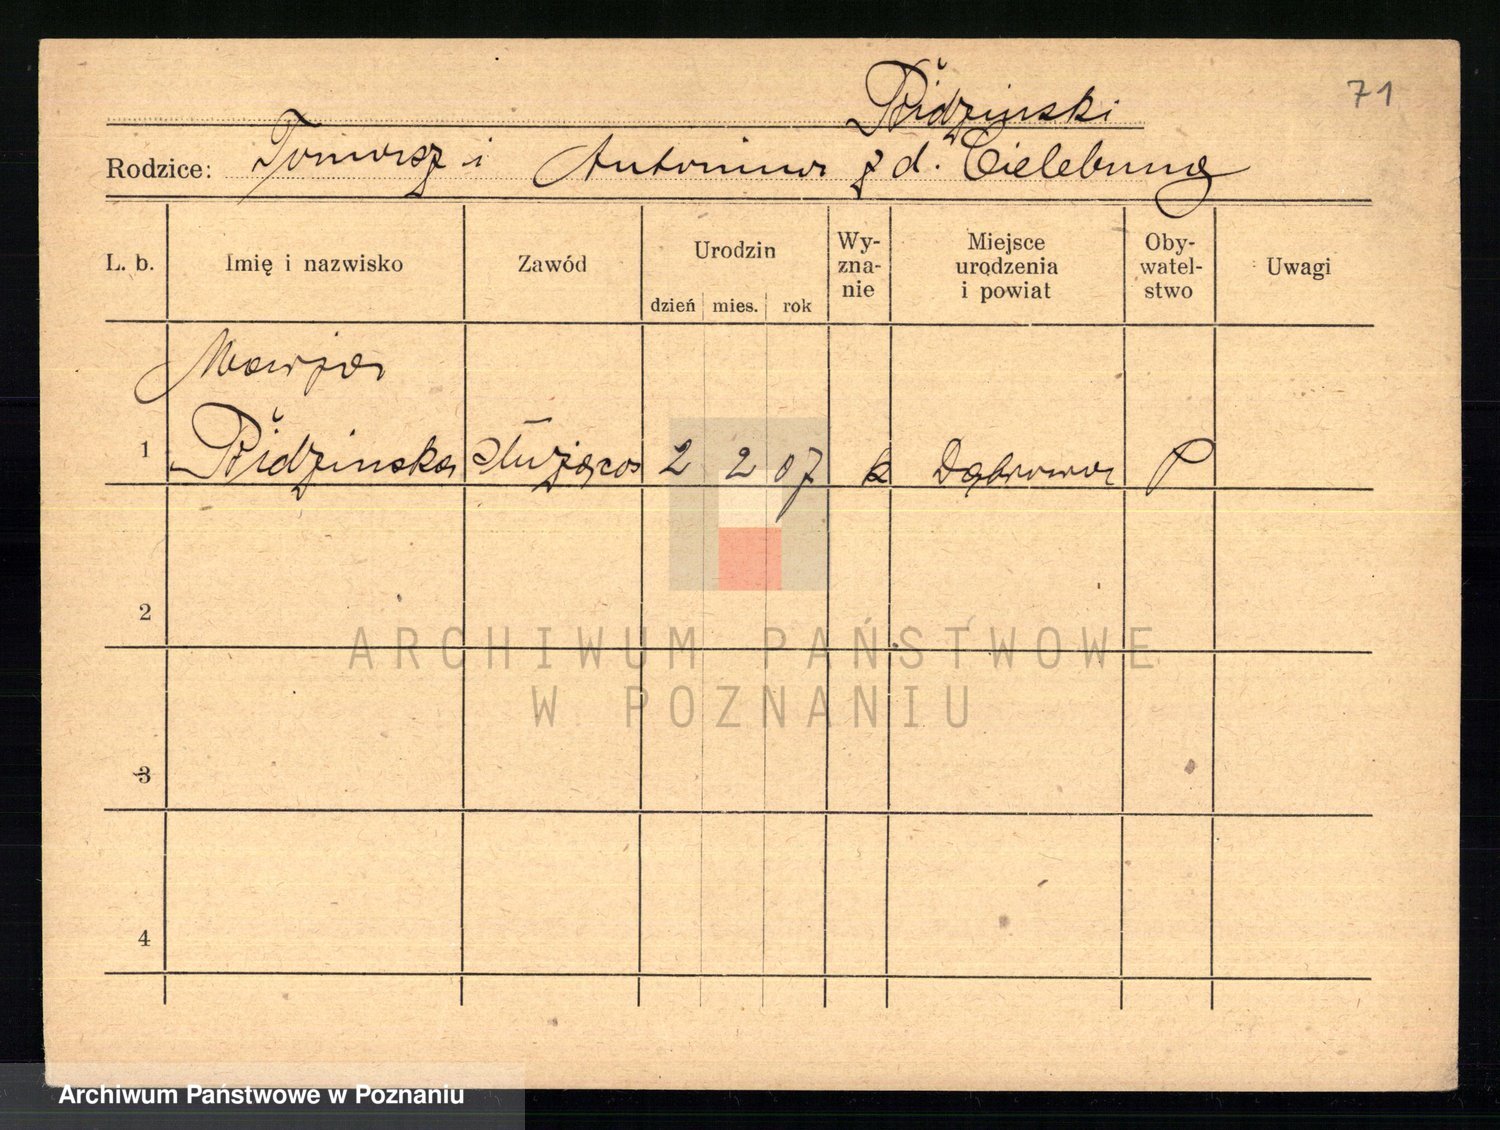 71
Rodzice: Tomasz i Antonina z d.
L. b.
Imię i nazwisko
Zawód
Urodzin
dzień mies. rok
Wy-
zna-
nie
Miejsce
urodzenia
i powiat
Oby-
watel-
stwo
Uwagi
Marja
1 służąca 2 2 07 k Dąbrowa P
2
3
4
ARCHIWUM PAŃSTWOWE
W POZNANIU
Archiwum Państwowe w Poznaniu